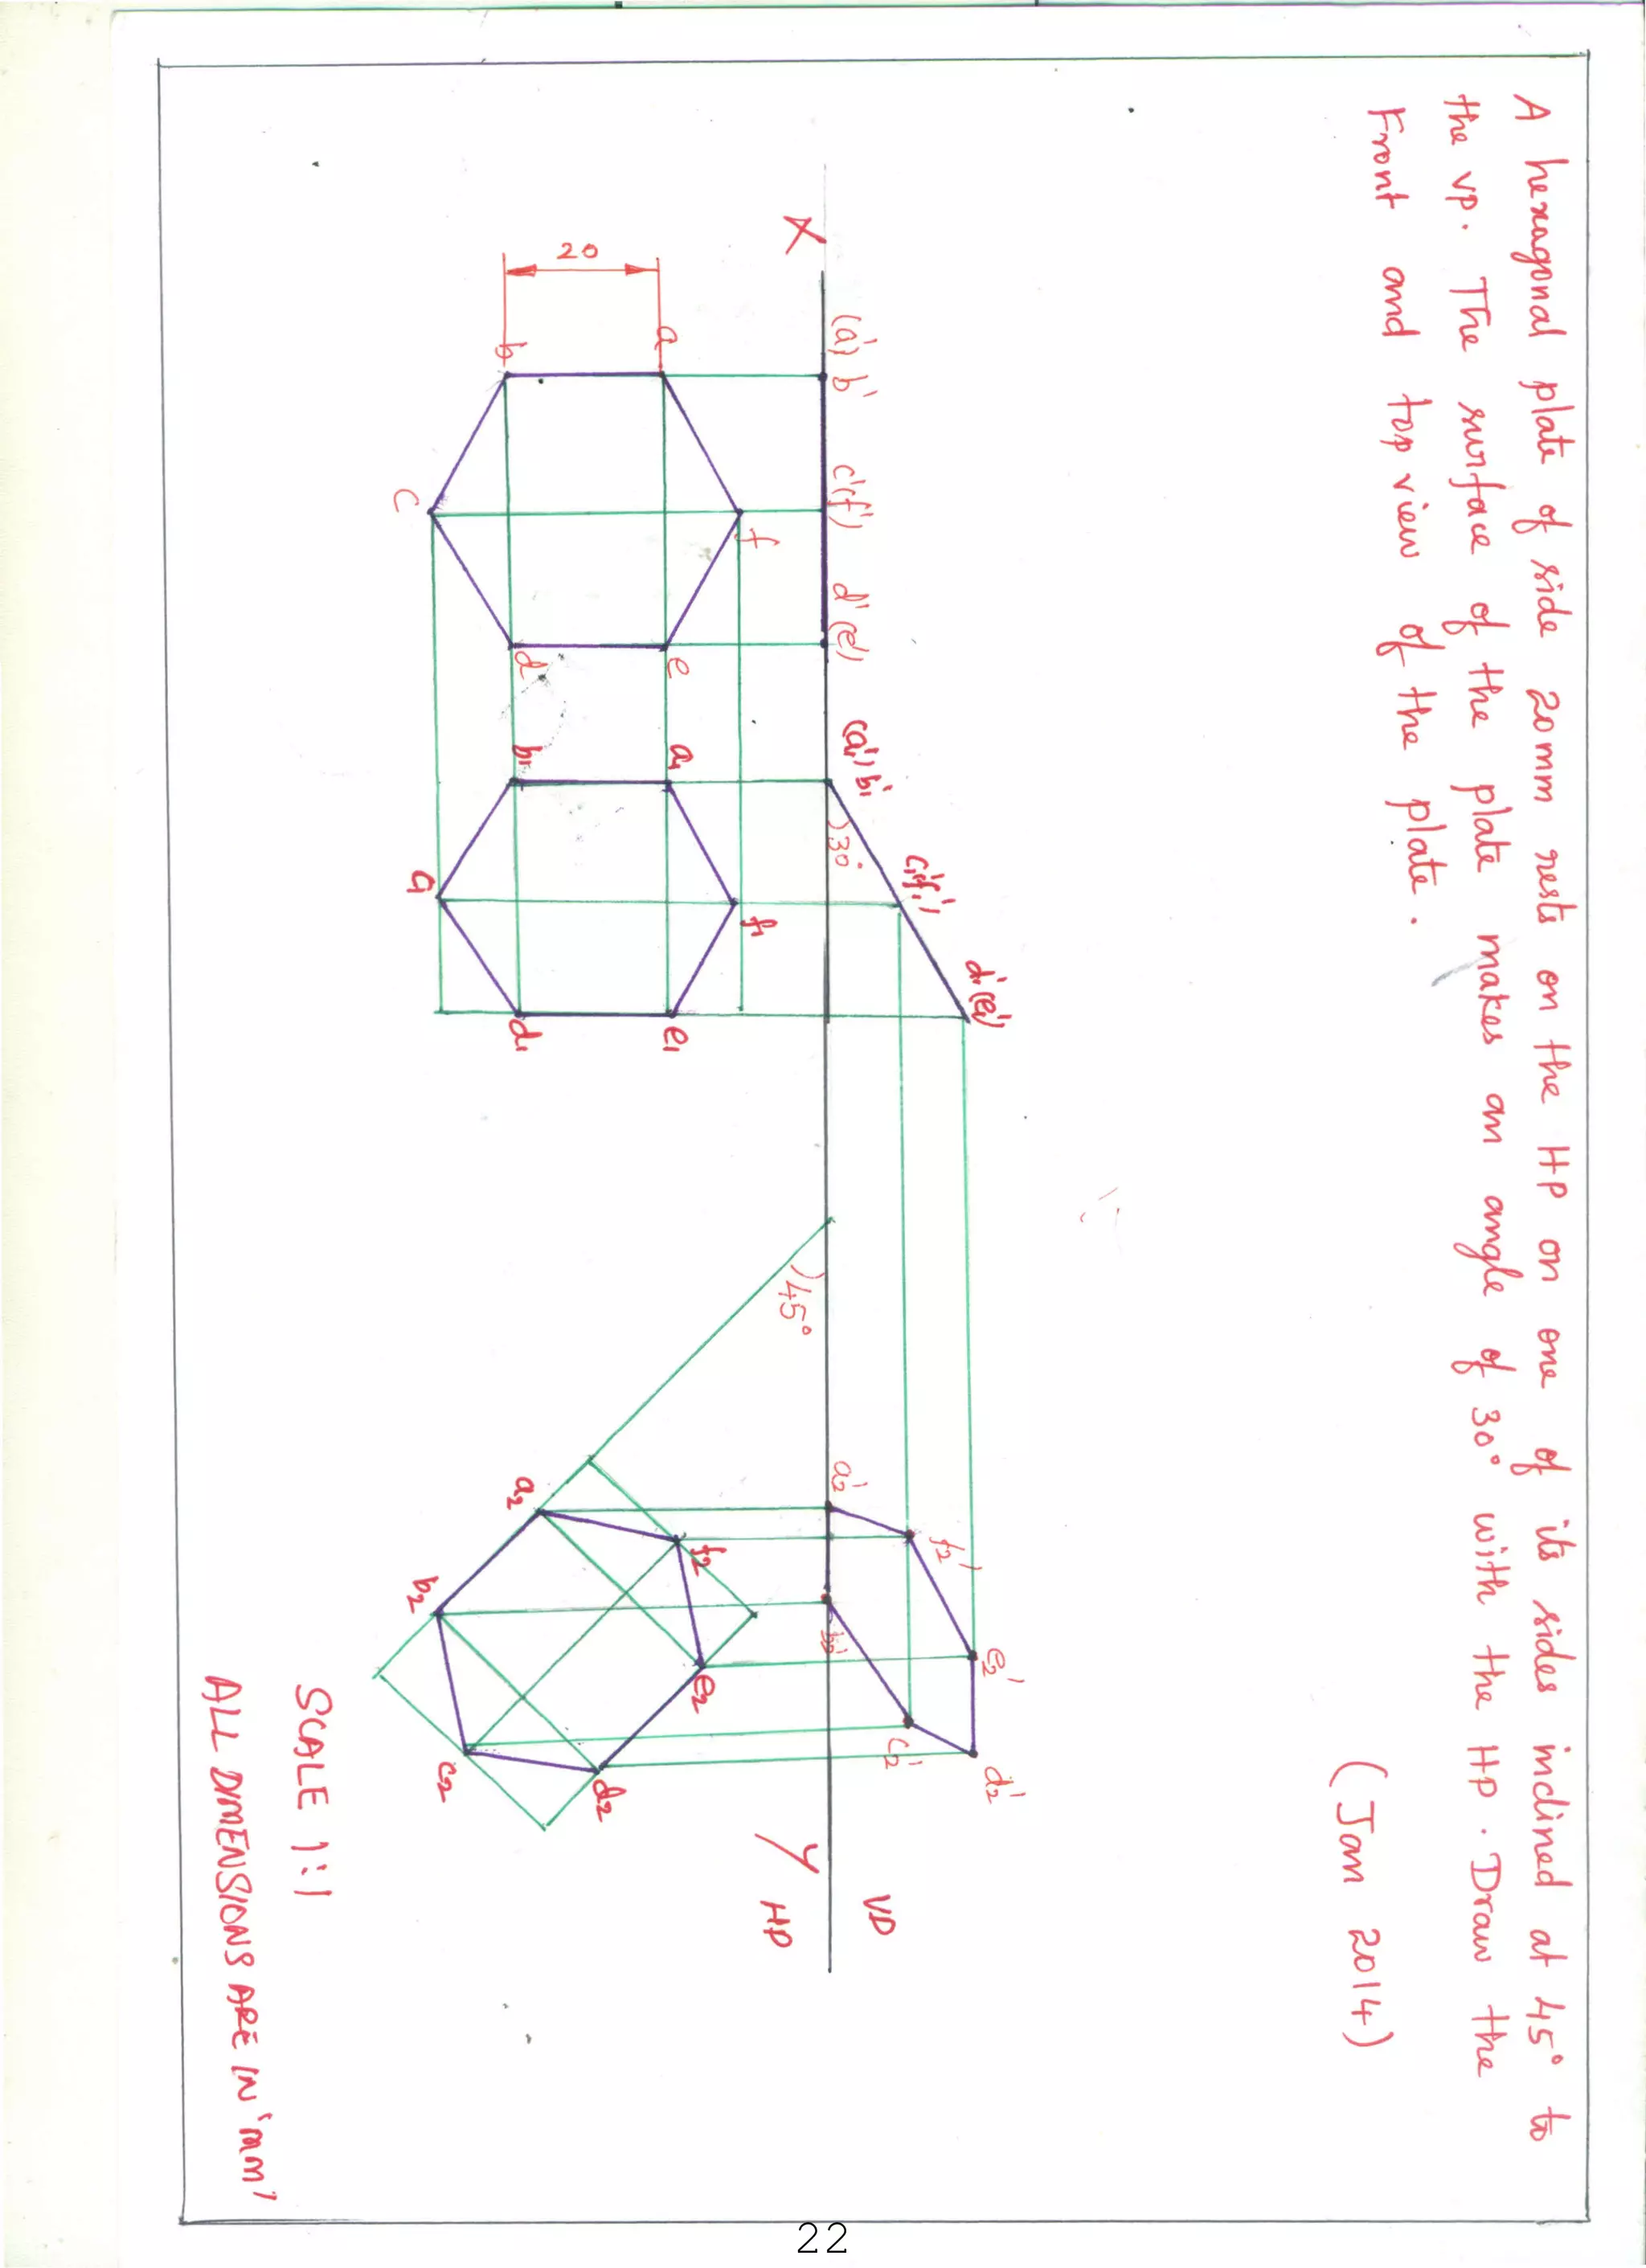 A hexagonal plate of side 20mm rests on the HP on one of its sides inclined at 45° to
the vp. The surface of the plate makes an angle of 30° with the HP. Draw the
Front and top view of the plate.
(Jan 2014)
X
(a') b'
c'(f')
d'(e')
(a1') b1'
30°
c1'(f1')
d1'(e1')
a2'
b2'
f2'
e2'
c2'
d2'
VP
HP
Y
45°
20
a
b
c
d
e
f
a1
b1
c1
d1
e1
f1
a2
b2
c2
d2
e2
f2
SCALE 1:1
ALL DIMENSIONS ARE IN 'mm'
22